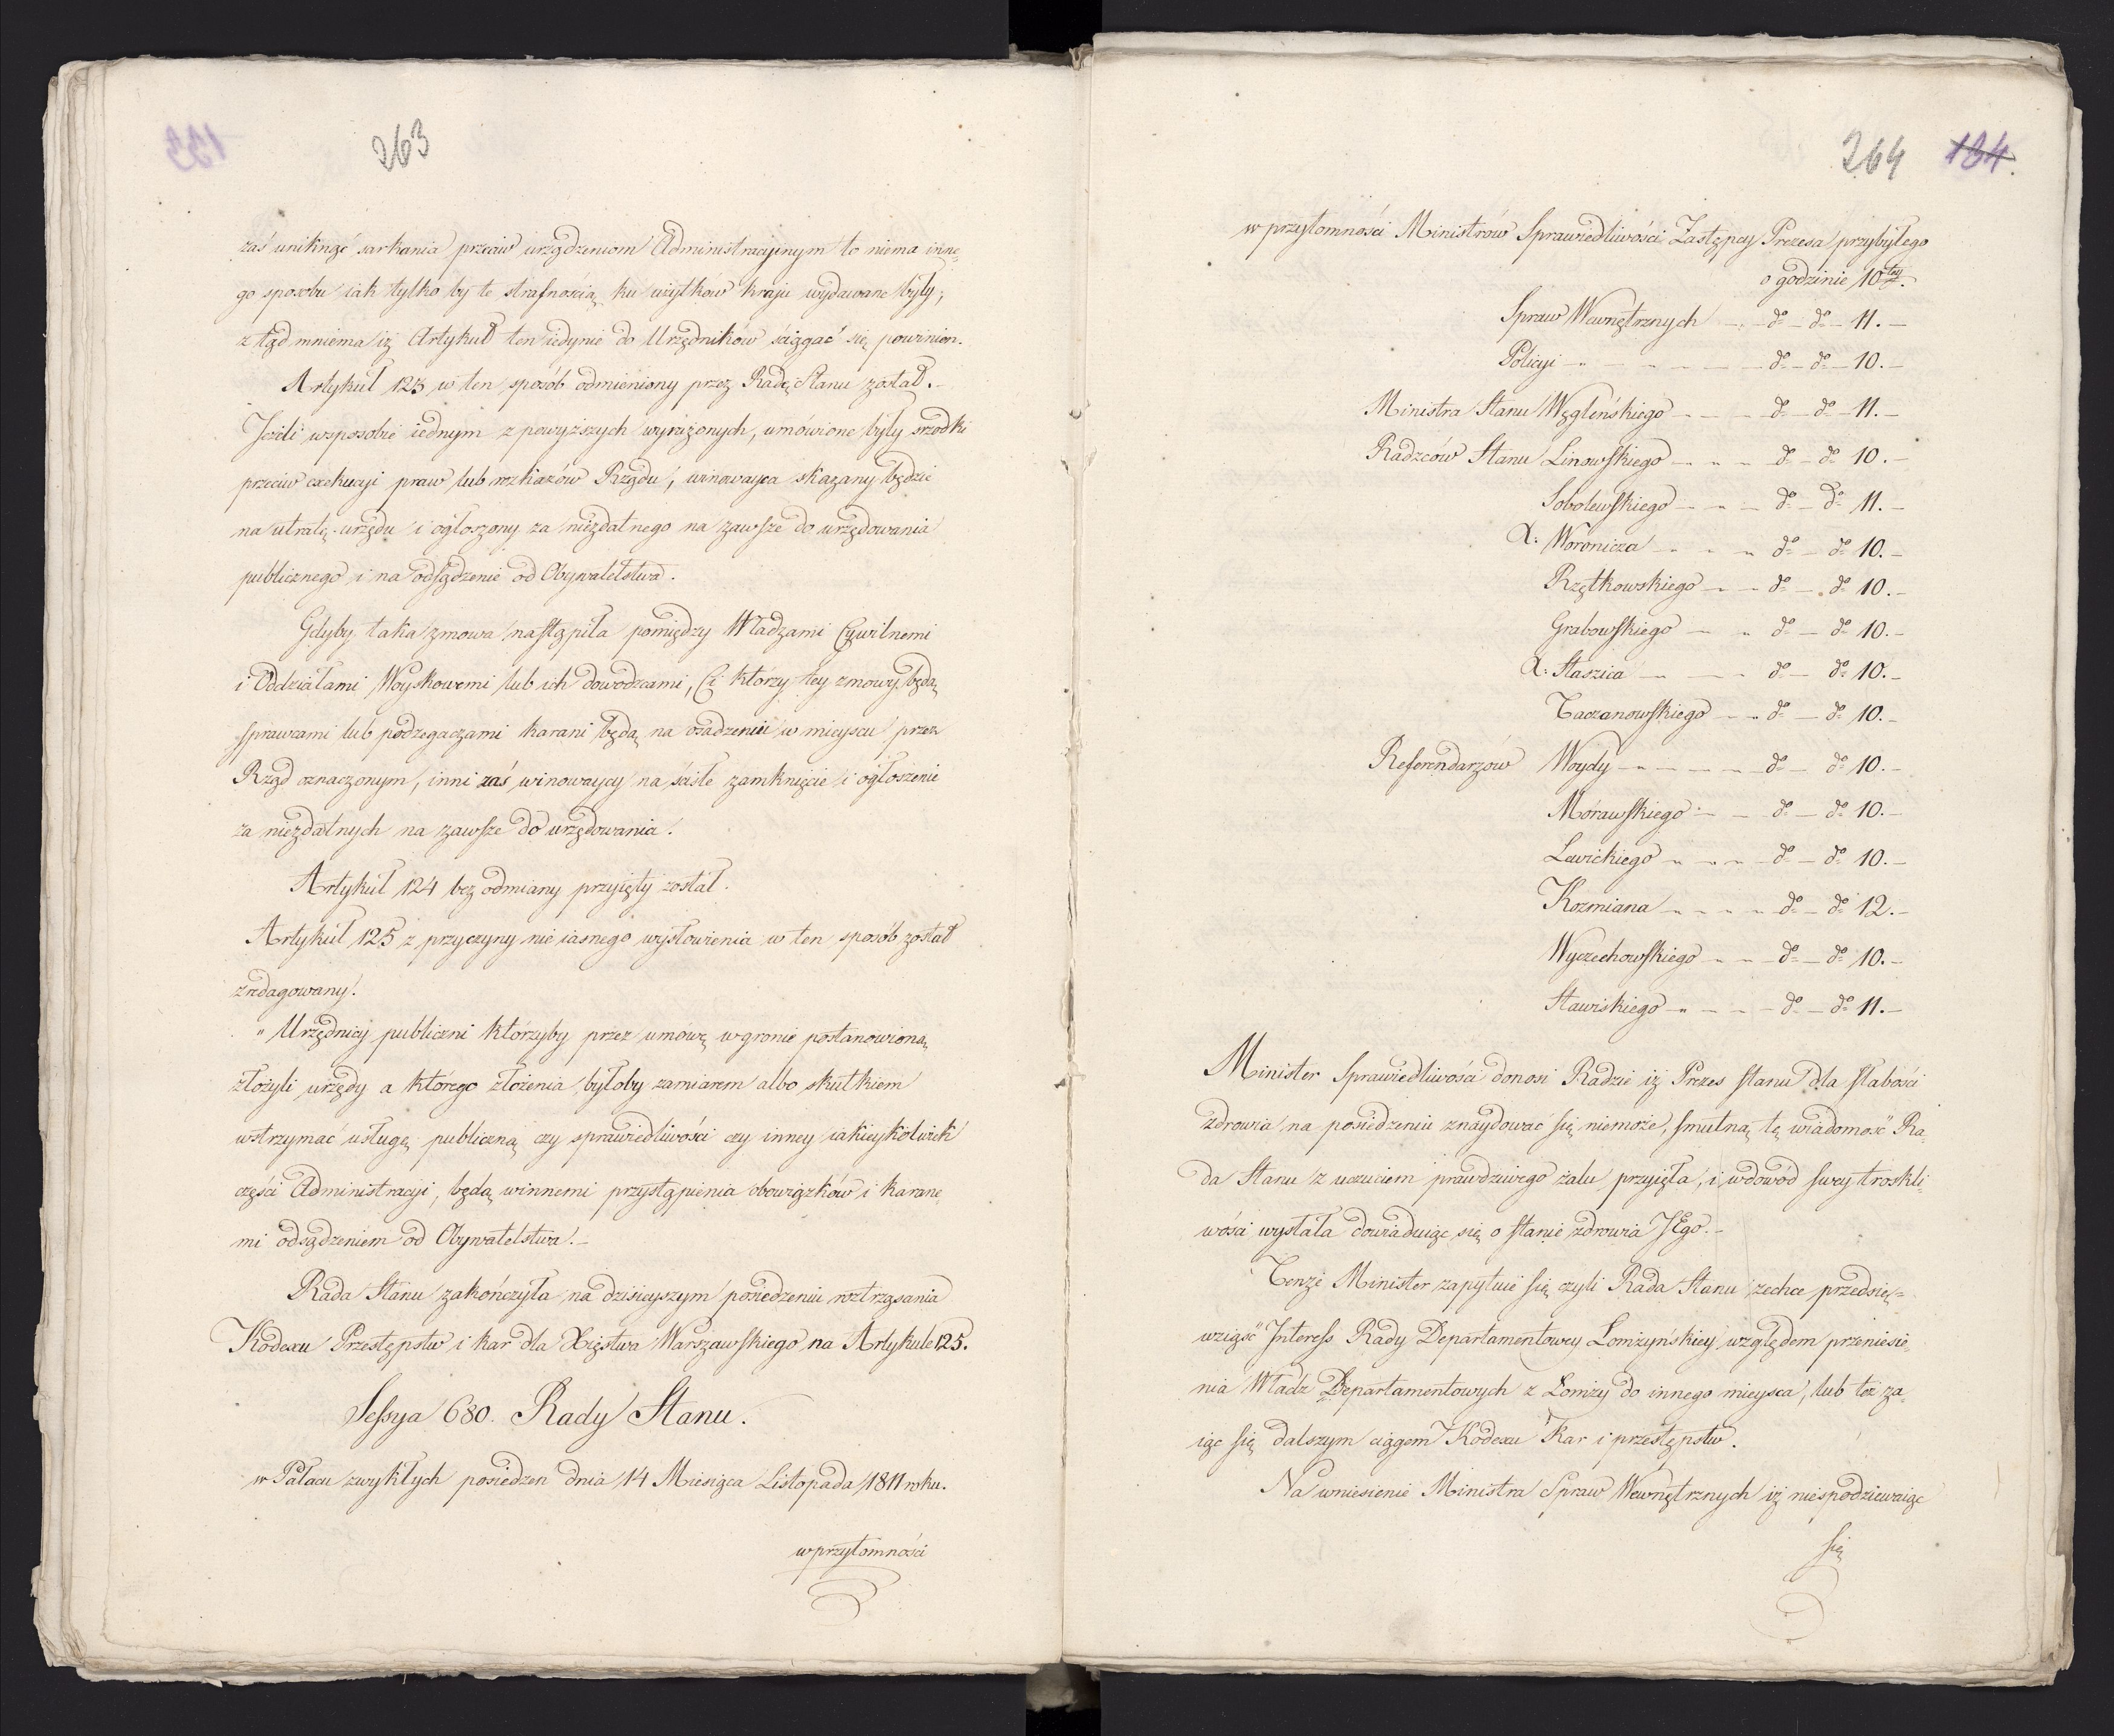 263
zaś uniknąć sarkania przeciw urządzeniom Administracyinym to niema inne-
go sposobu iak tylko by te strafnością ku użytków kraju wydawane były;
z tąd mniema iż Artykuł ten iedynie do Urzędników ściągać się powinien.
Artykuł 123 w ten sposób odmieniony przez Radę Stanu został.-
Jeżeli wsposobie iednym z powyższych wyrażonych, umówione były srzodki
przeciw exekucyi praw lub rozkazów Rządu, winowayca skazany będzie
na utratę urzędu i ogłoszony za niezdatnego na zawsze do urzędowania
publicznego i na odsądzenie od Obywatelstwa.
Gdyby taka zmowa nastąpiła pomiędzy Władzami Cywilnemi
i Oddziałami Woyskowemi lub ich dowodzcami, Ci którzy tey zmowy będą
sprawcami lub podzegaczami karani będą na osadzeniu w mieyscu przez
Rząd oznaczonym, inni zaś winowaycy na ścisłe zamknięcie i ogłoszenie
za niezdatnych na zawsze do urzędowania.
Artykuł 124 bez odmiany przyięty został.
Artykuł 125 z przyczyny nie iasnego wysłowienia w ten sposób został
zredagowany.
" Urzędnicy publiczni którzyby przez umowę w gronie postanowioną
złożyli urzędy a którego złożenia byłoby zamiarem albo skutkiem
wstrzymać usługę publiczną czy sprawiedliwości czy inney iakieykolwiek
części Administracyi, będą winnemi przystąpienia obowiązków i karane
mi odsądzeniem od Obywatelstwa.-
Rada Stanu zakończyła na dzisieyszym posiedzeniu roztrząsania
Kodexu Przestępstw i kar dla Xięstwa Warszawskiego na Artykule 125.
Sessya 680. Rady Stanu.
w Pałacu zwykłych posiedzen dnia 14 Miesiąca Listopada 1811 roku.
w przytomności
264 134.
w przytomności Ministrów Sprawiedliwości Zastępcy Prezesa przybyłego
o godzinie 10tey.
Spraw Wewnętrznych - - do - do - 11.-
Policyi - - - - - do - do - 10.-
Ministra Stanu Węgleńskiego - - - do - do - 11.-
Radzców Stanu Linowskiego - - - do - do 10.-
Sobolewskiego - - - do - do 11.-
X: Woronicza - - - do - do 10.-
Rzętkowskiego - - do - do 10.-
Grabowskiego - - do - do 10.-
X: Staszica - - - do - do 10.-
Taczanowskiego - - do - do 10.-
Referendarzów Woydy - - - - do - do 10.-
Mórawskiego - - do - do 10.-
Lewickiego - - - do - do 10.-
Kozmiana - - - - do - do 12.-
Wyczechowskiego - - do - do 10.-
Stawiskiego - - - do - do 11.-
Minister Sprawiedliwości donosi Radzie iż Prezes Stanu dla słabości
zdrowia na posiedzeniu znaydować się niemoże, smutną tę wiadomość Ra-
da Stanu z uczuciem prawdziwego żalu przyięła, i wdowód swey troskli-
wości wysłała dowiaduiąc się o stanie zdrowia JEgo.-
Tenże Minister zapytuie się czyli Rada Stanu zechce przedsię-
wziąść Interess Rady Departamentowey Łomżyńskiey względem przeniesie-
nia Władz Departamentowych z Łomży do innego mieysca, lub też za-
iąc się dalszym ciągem Kodexu Kar i przestępstw.
Na wniesienie Ministra Spraw Wewnętrznych iż niespodziewaiąc
się